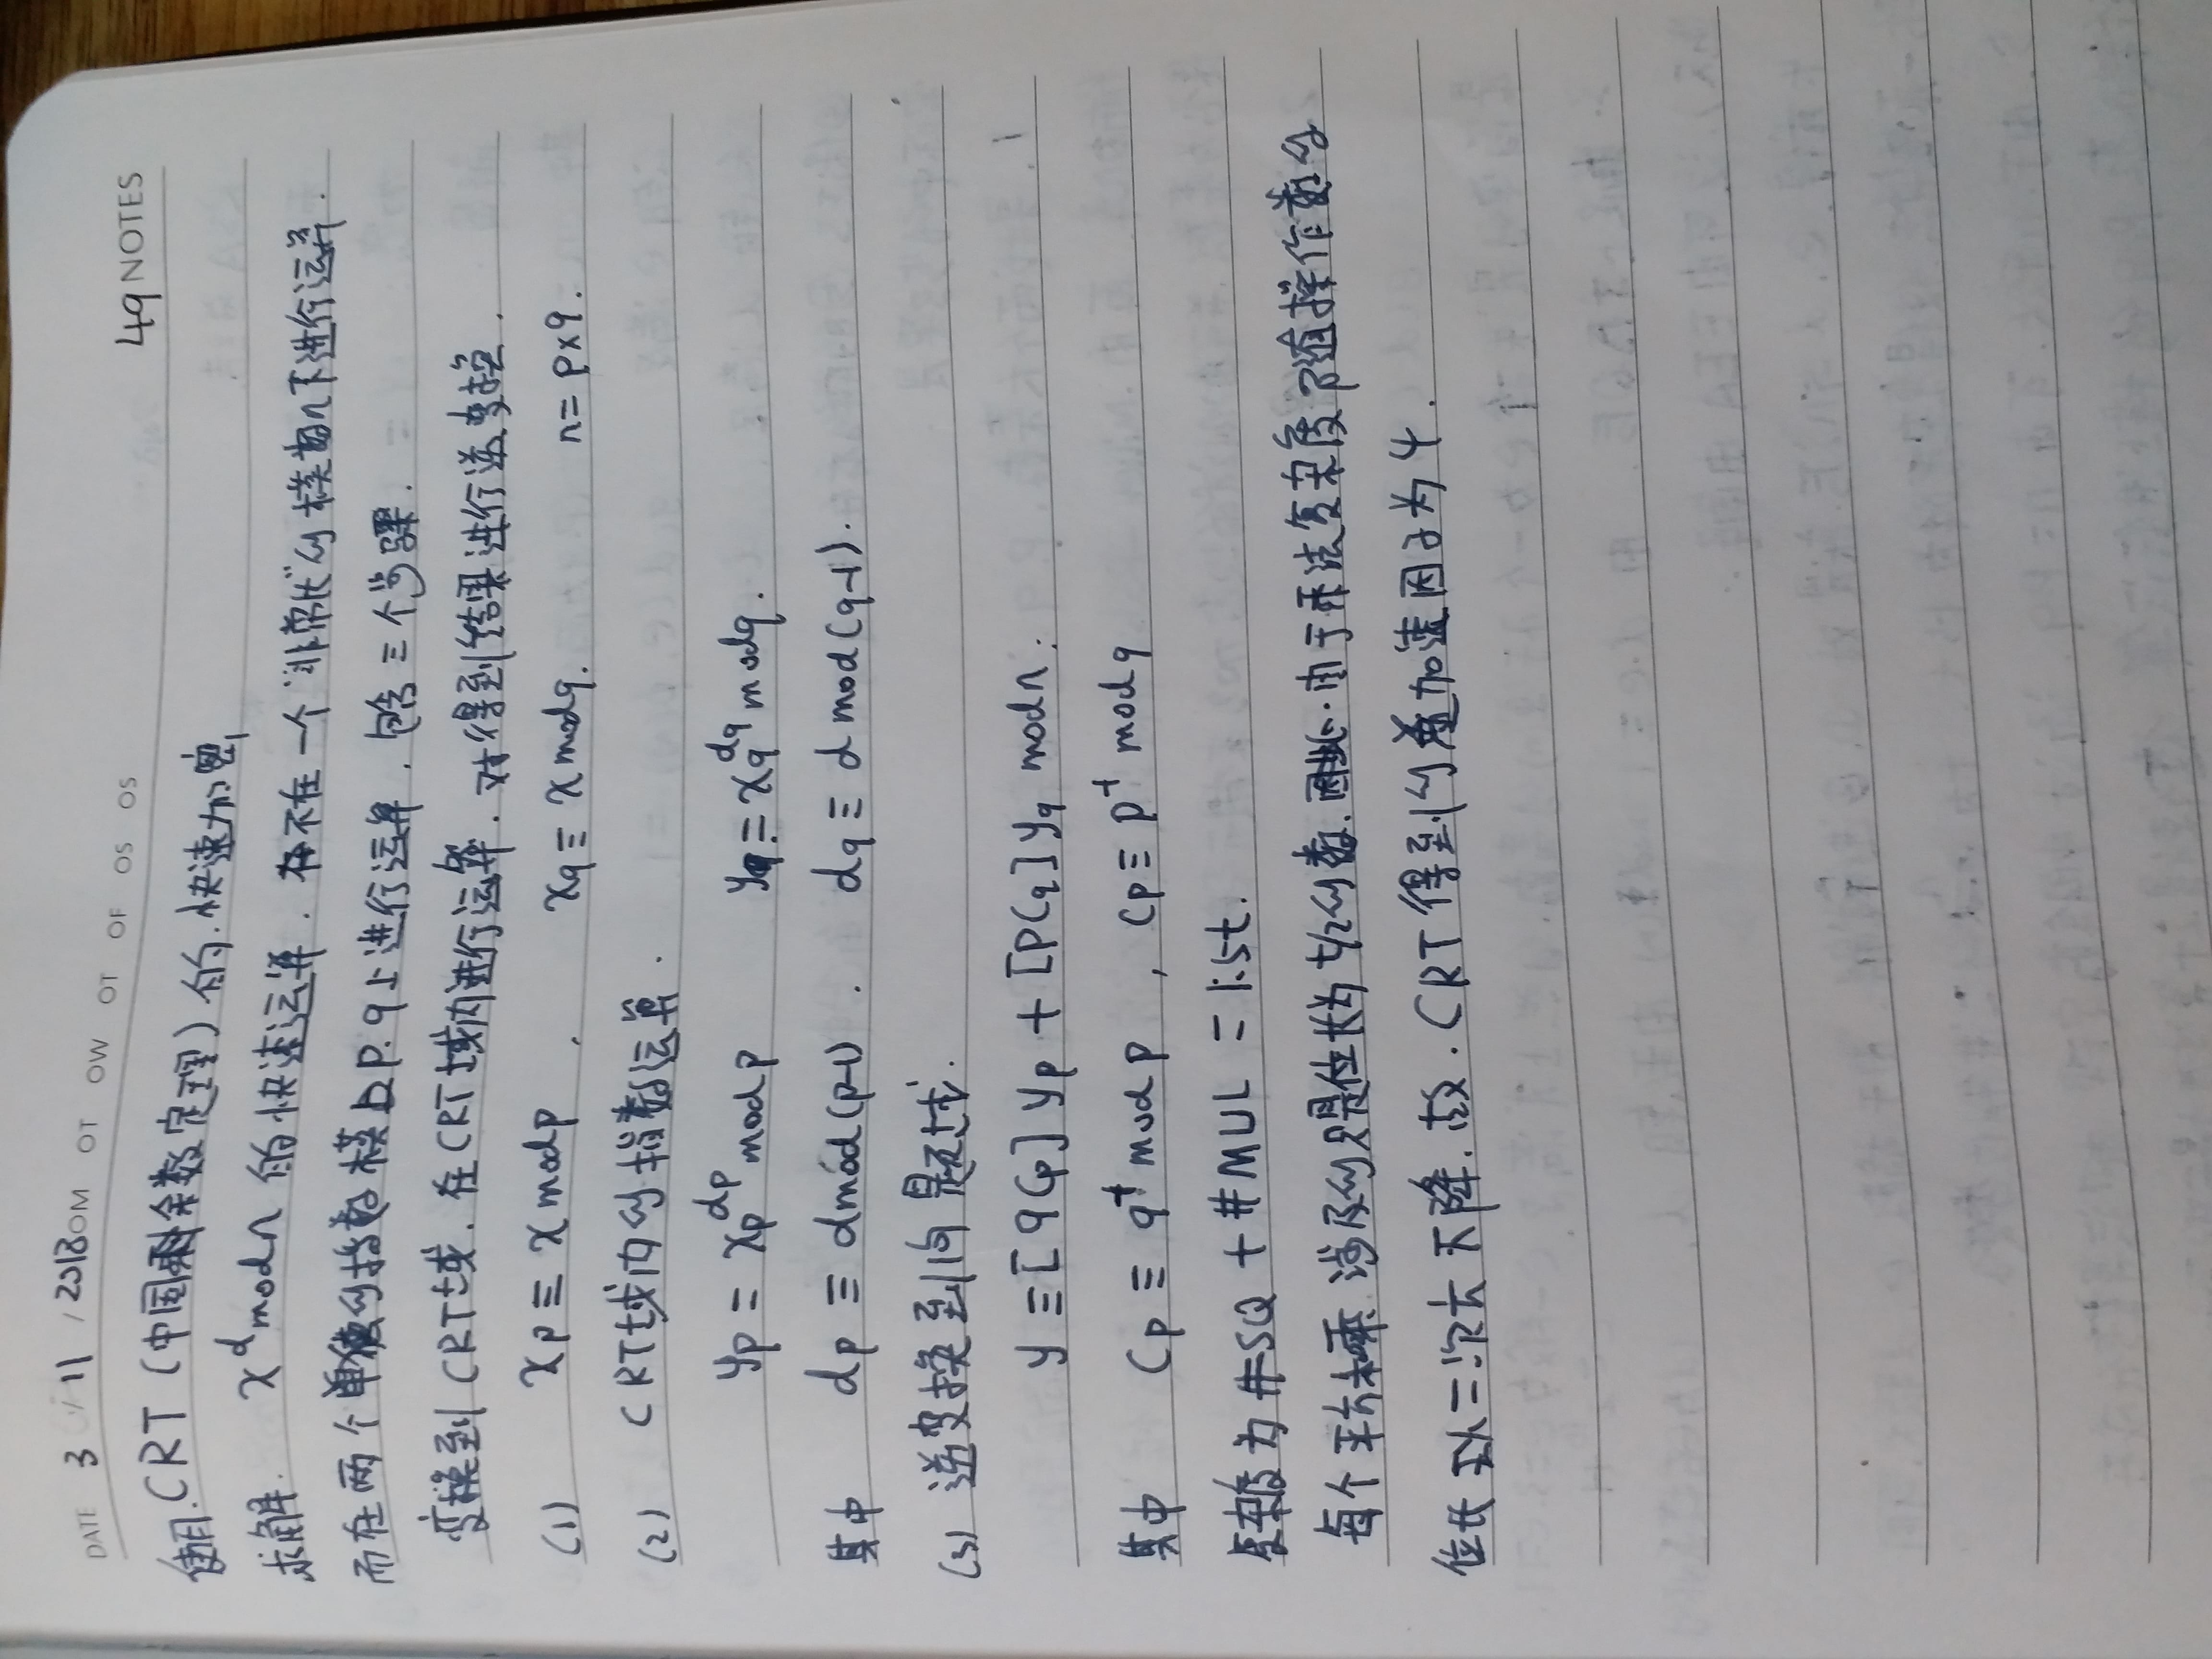 DATE 3 / 11 / 2018 OM OT OW OT OF OS OS
49 NOTES
使用.CRT(中国剩余数定理)的.快速加密,
求解. x^d mod n 的快速运算.不在一个"非常长"的模数n下进行运算.
而在两个单独的指数模上p.q上进行运算.包含三个步骤.
变换到CRT域.在CRT域内进行运算.对得到结果进行逆变换.
(1) xp ≡ x mod p , xq ≡ x mod q. n = p×q.
(2) CRT域内的指数运算.
yp = xp^dp mod p yq = xq^dq mod q.
其中 dp ≡ d mod (p-1) . dq ≡ d mod (q-1).
(3) 逆变换到问题域.
y ≡ [qCp] yp + [pCq] yq mod n.
其中 Cp ≡ q^-1 mod p , Cp ≡ p^-1 mod q
复杂度为 #SQ + #MUL = 1.5t.
每个平方和乘 涉及的只是位长为 t/2的数.因此.由于乘法复杂度随操作数的
位长 以二次方下降.故.CRT得到的加速因子为4.